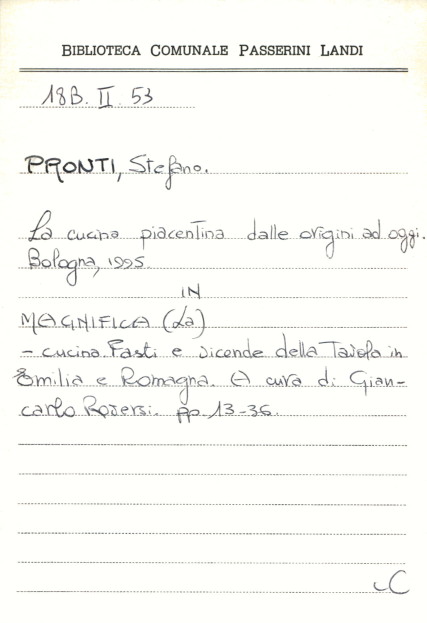 BIBLIOTECA COMUNALE PASSERINI LANDI
18B. II. 53
PRONTI, Stefano.
La cucina piacentina dalle origini ad oggi.
Bologna, 1995.
IN
MAGNIFICA (La)
- cucina. Fasti e vicende della Tavola in
Emilia e Romagna. A cura di Gian-
carlo Roversi. pp. 13-36.